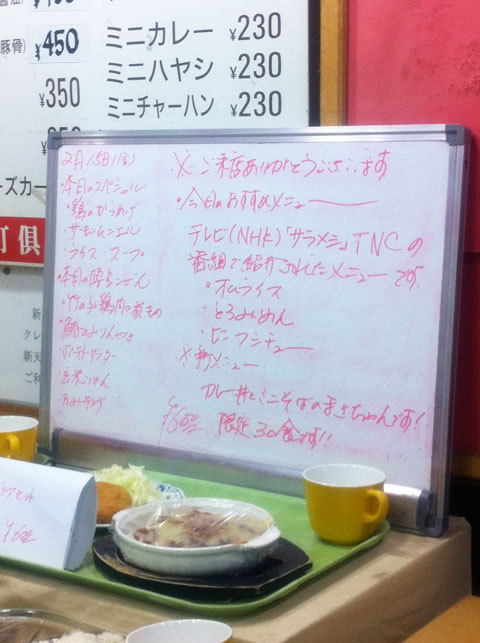 豚骨) ¥450
¥350
ミニカレー ¥230
ミニハヤシ ¥230
ミニチャーハン ¥230
ーズカー
町倶
新
クレ
新天
ご利
2月15日(金)
・本日のスペシャル
・鶏のからあげ
・サーモンムニエル
・ライス スープ
・本日の博多ごはん
・竹の子鶏肉の煮もの
・ポテトサラダー
・玄米ごはん
※ご来店ありがとうございます
・今日のおすすめメニュー
テレビ(NHK)「サラメシ」TNCの
番組で紹介されたメニューです
・オムライス
・とろみめん
・ビーフシチュー
※新メニュー
カレー丼とミニそばのまさちゃんです!
限定30食です!!
アセット